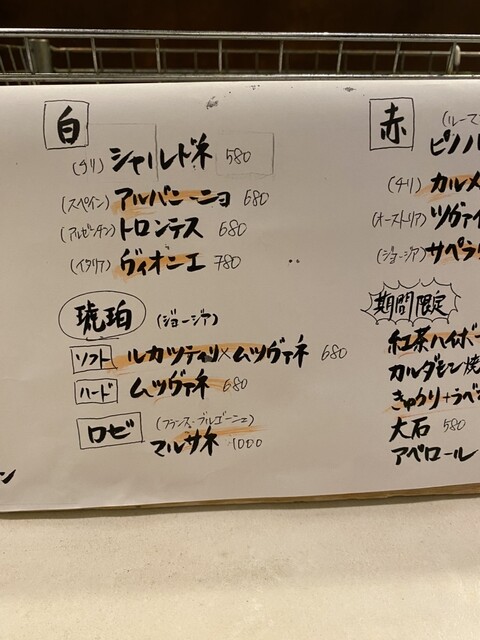 白
(チリ) シャルドネ 580
(スペイン) アルバニーニョ 680
(アルゼンチン) トロンテス 680
(イタリア) ヴィオニエ 780
琥珀 (ジョージア)
ソフト ルカツティリ×ムツヴァネ 680
ハード ムツヴァネ 680
ロゼ (フランス・ブルゴーニュ)
マルサネ 1000
赤
(ルーマ
ピノノ
(チリ) カルメ
(オーストリア) ツヴァイ
(ジョージア) サペラ
期間限定
紅茶ハイボー
カルダモン焼
きゅうり+ラベ
大石 580
アペロール
ン